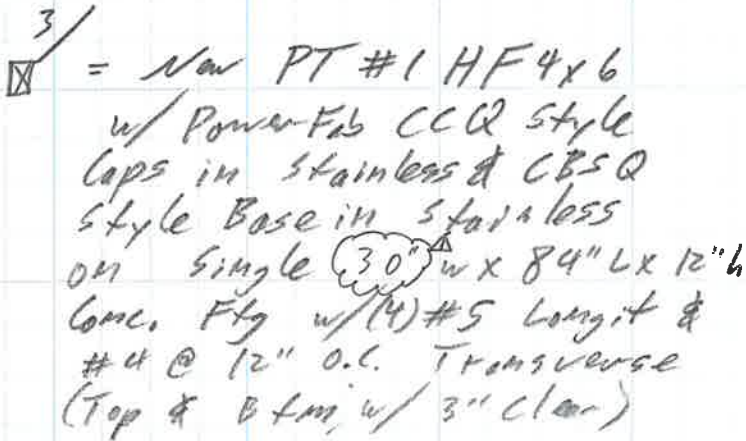 3
= New PT #1 HF 4x6
w/ PowerFab CCQ Style
Caps in Stainless & CBSQ
Style Base in Stainless
on Single 30" w x 84" L x 12" h
Conc. Ftg w/(4)#5 Longit &
#4 @ 12" O.C. Transverse
(Top & Btm, w/ 3" Clear)